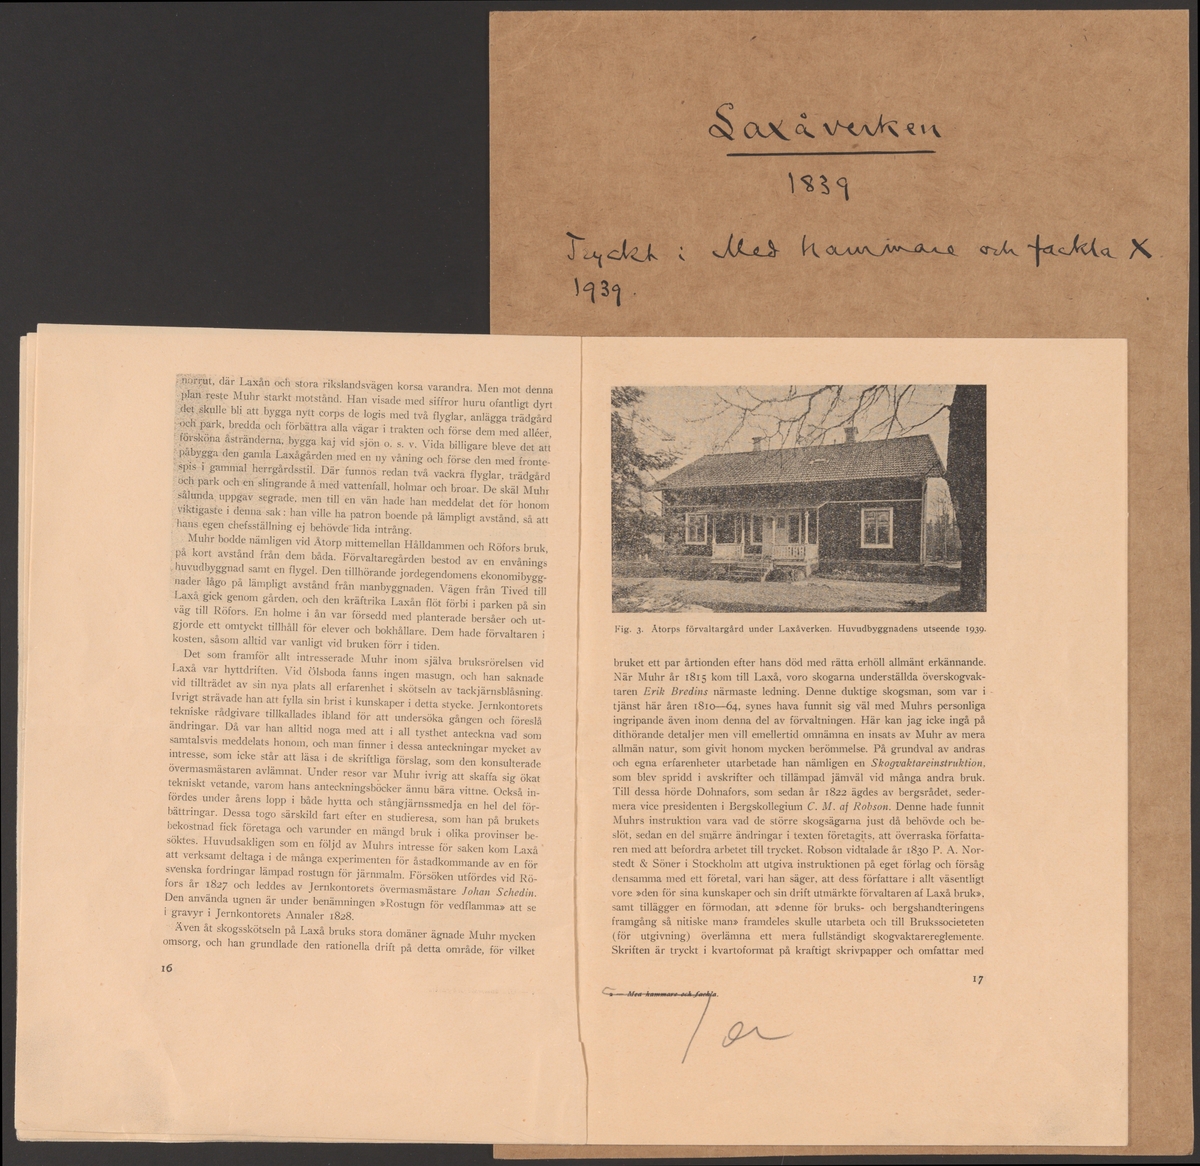 Laxåverken
1839
Tryckt i Med hammare och fackla X
1939.
norrut, där Laxån och stora rikslandsvägen korsa varandra. Men mot denna
plan reste Muhr starkt motstånd. Han visade med siffror huru ofantligt dyrt
det skulle bli att bygga nytt corps de logis med två flyglar, anlägga trädgård
och park, bredda och förbättra alla vägar i trakten och förse dem med alléer,
försköna åstränderna, bygga kaj vid sjön o. s. v. Vida billigare bleve det att
påbygga den gamla Laxågården med en ny våning och förse den med fronte-
spis i gammal herrgårdsstil. Där funnos redan två vackra flyglar, trädgård
och park och en slingrande å med vattenfall, holmar och broar. De skäl Muhr
sålunda uppgav segrade, men till en vän hade han meddelat det för honom
viktigaste i denna sak: han ville ha patron boende på lämpligt avstånd, så att
hans egen chefsställning ej behövde lida intrång.
Muhr bodde nämligen vid Åtorp mittemellan Hålldammen och Röfors bruk,
på kort avstånd från dem båda. Förvaltaregården bestod av en envånings
huvudbyggnad samt en flygel. Den tillhörande jordegendomens ekonomibygg-
nader lågo på lämpligt avstånd från manbyggnaden. Vägen från Tived till
Laxå gick genom gården, och den kräftrika Laxån flöt förbi i parken på sin
väg till Röfors. En holme i ån var försedd med planterade bersåer och ut-
gjorde ett omtyckt tillhåll för elever och bokhållare. Dem hade förvaltaren i
kosten, såsom alltid var vanligt vid bruken förr i tiden.
Det som framför allt intresserade Muhr inom själva bruksrörelsen vid
Laxå var hyttdriften. Vid Ölsboda fanns ingen masugn, och han saknade
vid tillträdet av sin nya plats all erfarenhet i skötseln av tackjärnsblåsning.
Ivrigt strävade han att fylla sin brist i kunskaper i detta stycke. Jernkontorets
tekniske rådgivare tillkallades ibland för att undersöka gången och föreslå
ändringar. Då var han alltid noga med att i all tysthet anteckna vad som
samtalsvis meddelats honom, och man finner i dessa anteckningar mycket av
intresse, som icke står att läsa i de skriftliga förslag, som den konsulterade
övermasmästaren avlämnat. Under resor var Muhr ivrig att skaffa sig ökat
tekniskt vetande, varom hans anteckningsböcker ännu bära vittne. Också in-
fördes under årens lopp i både hytta och stångjärnssmedja en hel del för-
bättringar. Dessa togo särskild fart efter en studieresa, som han på brukets
bekostnad fick företaga och varunder en mängd bruk i olika provinser be-
söktes. Huvudsakligen som en följd av Muhrs intresse för saken kom Laxå
att verksamt deltaga i de många experimenten för åstadkommande av en för
svenska fordringar lämpad rostugn för järnmalm. Försöken utfördes vid Rö-
fors år 1827 och leddes av Jernkontorets övermasmästare Johan Schedin.
Den använda ugnen är under benämningen »Rostugn för vedflamma» att se
i gravyr i Jernkontorets Annaler 1828.
Även åt skogsskötseln på Laxå bruks stora domäner ägnade Muhr mycken
omsorg, och han grundlade den rationella drift på detta område, för vilket
16
Fig. 3. Åtorps förvaltargård under Laxåverken. Huvudbyggnadens utseende 1939.
bruket ett par årtionden efter hans död med rätta erhöll allmänt erkännande.
När Muhr år 1815 kom till Laxå, voro skogarna underställda överskogvak-
taren Erik Bredins närmaste ledning. Denne duktige skogsman, som var i
tjänst här åren 1810—64, synes hava funnit sig väl med Muhrs personliga
ingripande även inom denna del av förvaltningen. Här kan jag icke ingå på
dithörande detaljer men vill emellertid omnämna en insats av Muhr av mera
allmän natur, som givit honom mycken berömmelse. På grundval av andras
och egna erfarenheter utarbetade han nämligen en Skogvaktareinstruktion,
som blev spridd i avskrifter och tillämpad jämväl vid många andra bruk.
Till dessa hörde Dohnafors, som sedan år 1822 ägdes av bergsrådet, seder-
mera vice presidenten i Bergskollegium C. M. af Robson. Denne hade funnit
Muhrs instruktion vara vad de större skogsägarna just då behövde och be-
slöt, sedan en del smärre ändringar i texten företagits, att överraska författa-
ren med att befordra arbetet till trycket. Robson vidtalade år 1830 P. A. Nor-
stedt & Söner i Stockholm att utgiva instruktionen på eget förlag och försåg
densamma med ett företal, vari han säger, att dess författare i allt väsentligt
vore »den för sina kunskaper och sin drift utmärkte förvaltaren af Laxå bruk»,
samt tillägger en förmodan, att »denne för bruks- och bergshandteringens
framgång så nitiske man» framdeles skulle utarbeta och till Brukssocieteten
(för utgivning) överlämna ett mera fullständigt skogvaktarereglemente.
Skriften är tryckt i kvartoformat på kraftigt skrivpapper och omfattar med
17
2 — Med hammare och fackla.